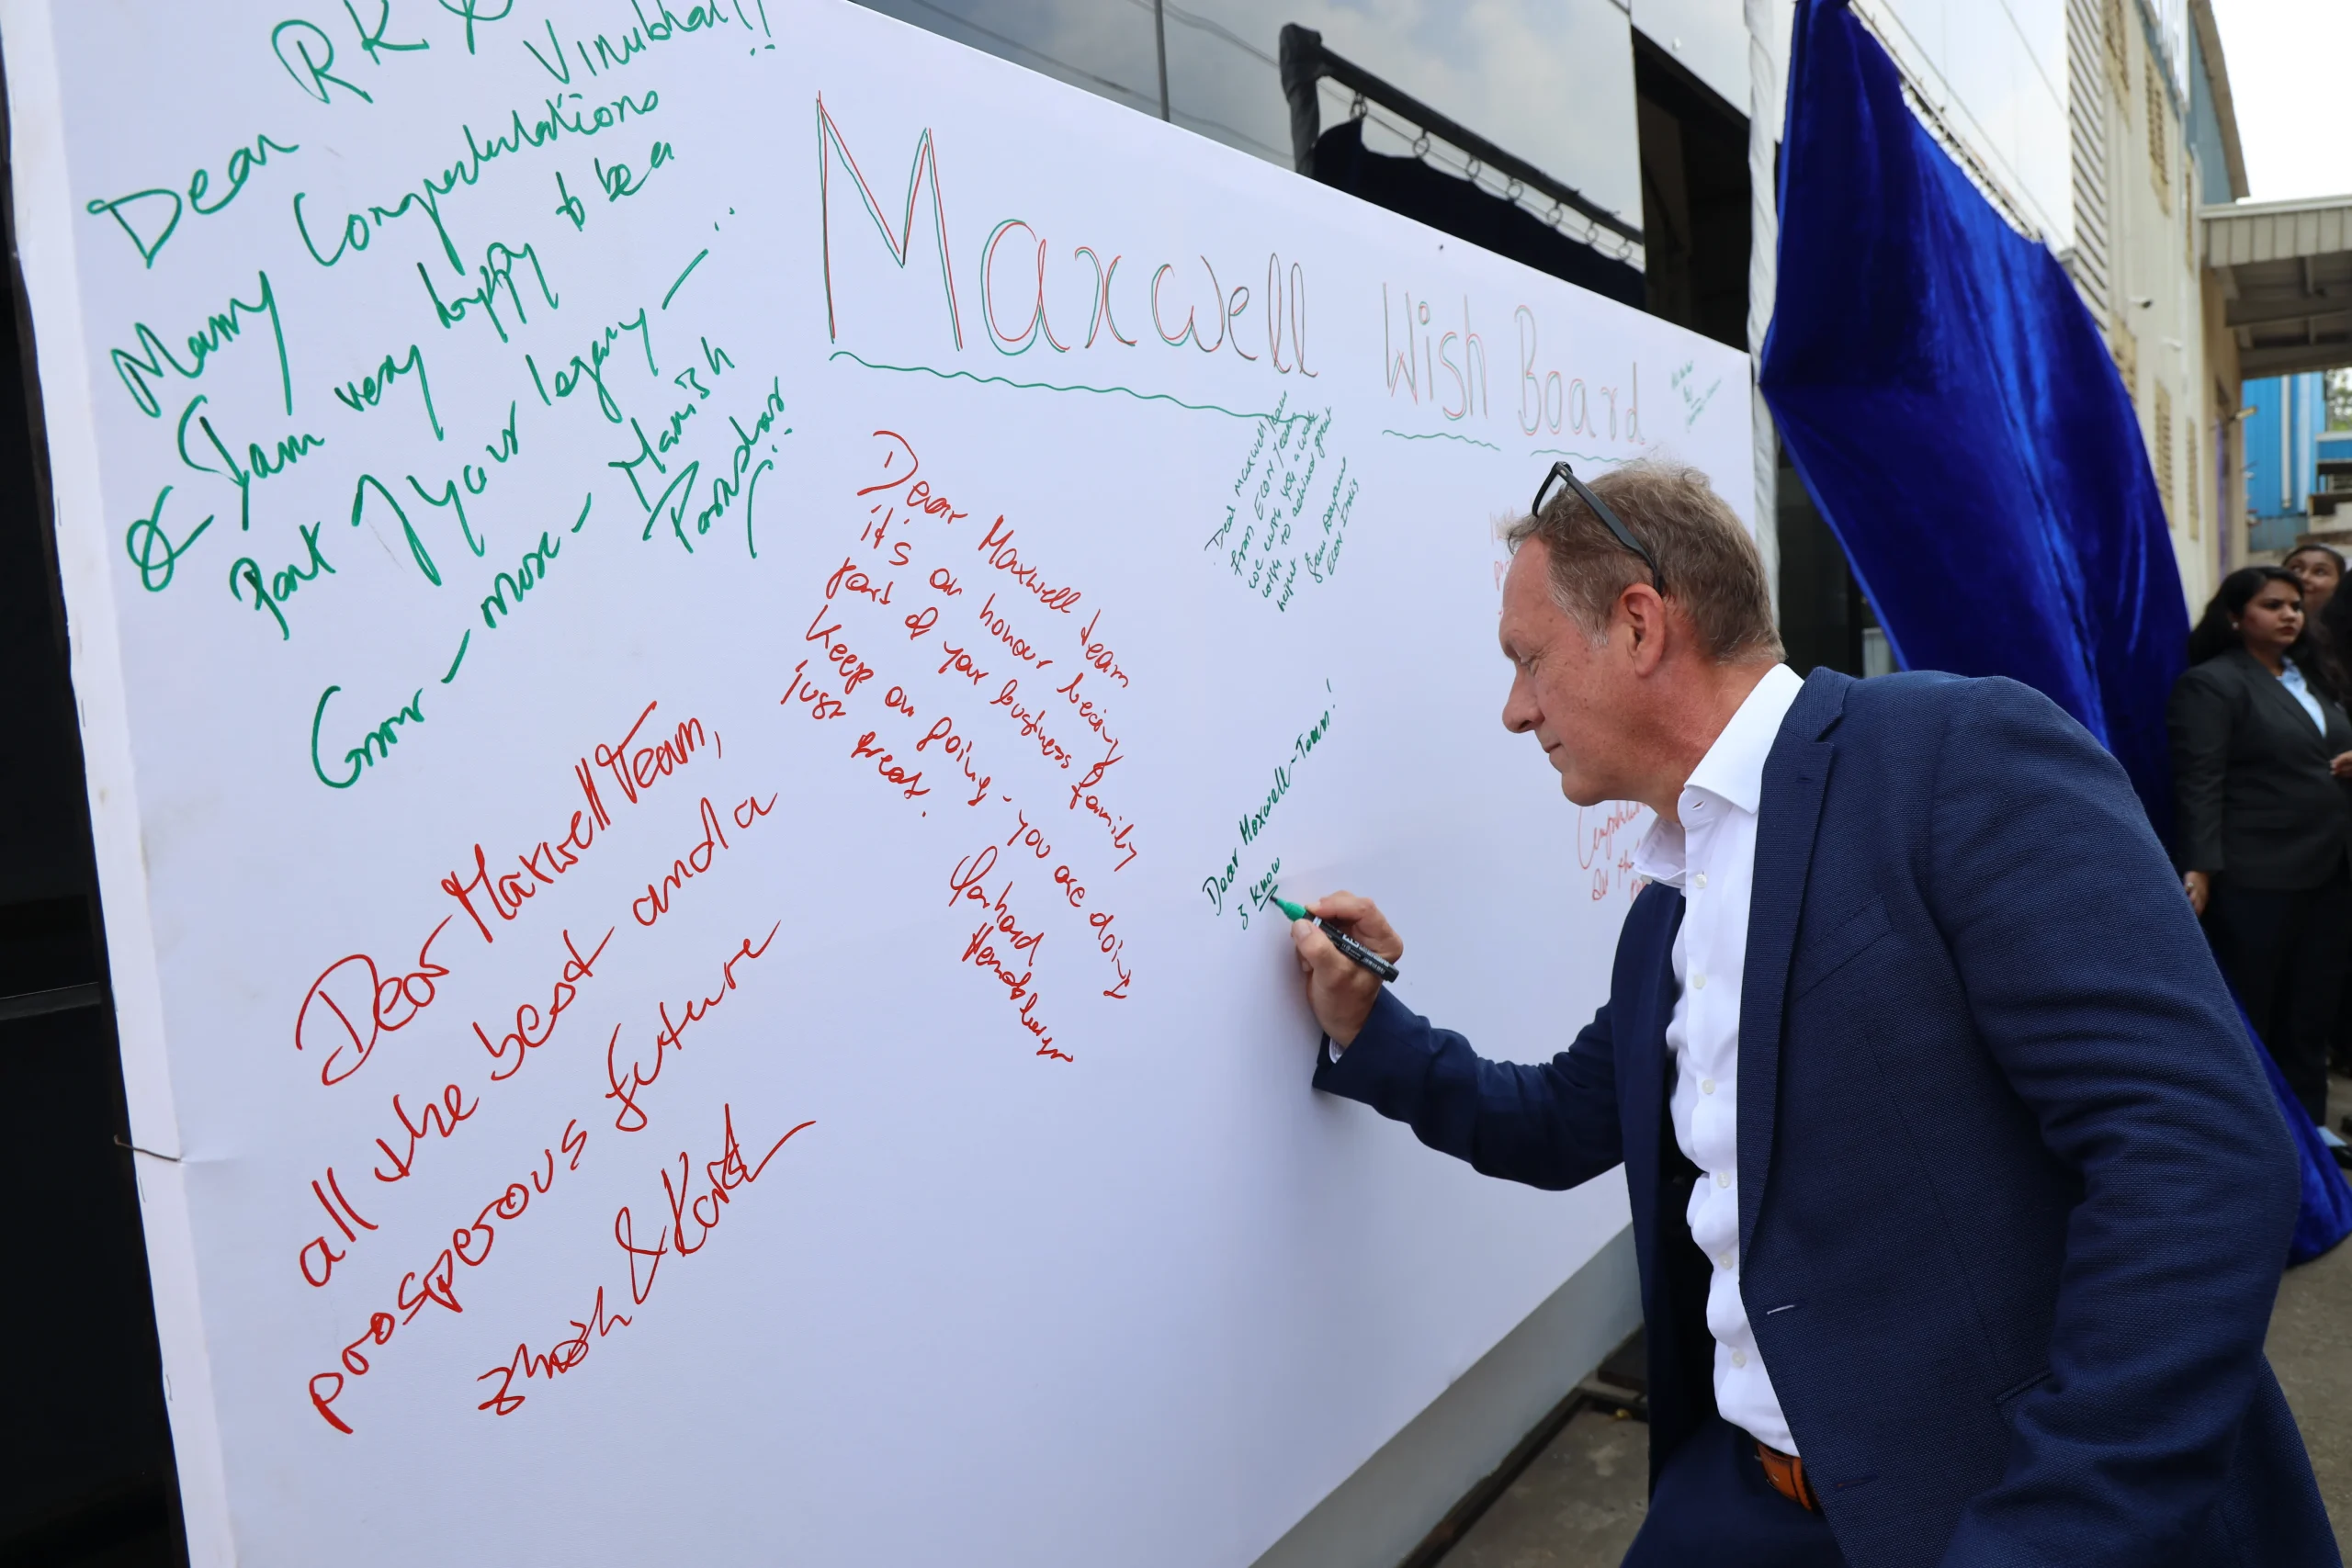 Dear RK &
Vinubhai!!
Many Congratulations
& I am very happy to be a
Part of your legacy —
Grow — more — Manish
Maxwell Wish Board
Dear Maxwell Team,
all the best and a
prosperous future
Dear Maxwell team
it's an honour being
part of your business family
Keep on going, you are doing
just great.
Dear Maxwell Team
From ECON Team
we wish you a
to achieve great
height
ECON
Dear Maxwell-Team!
I know